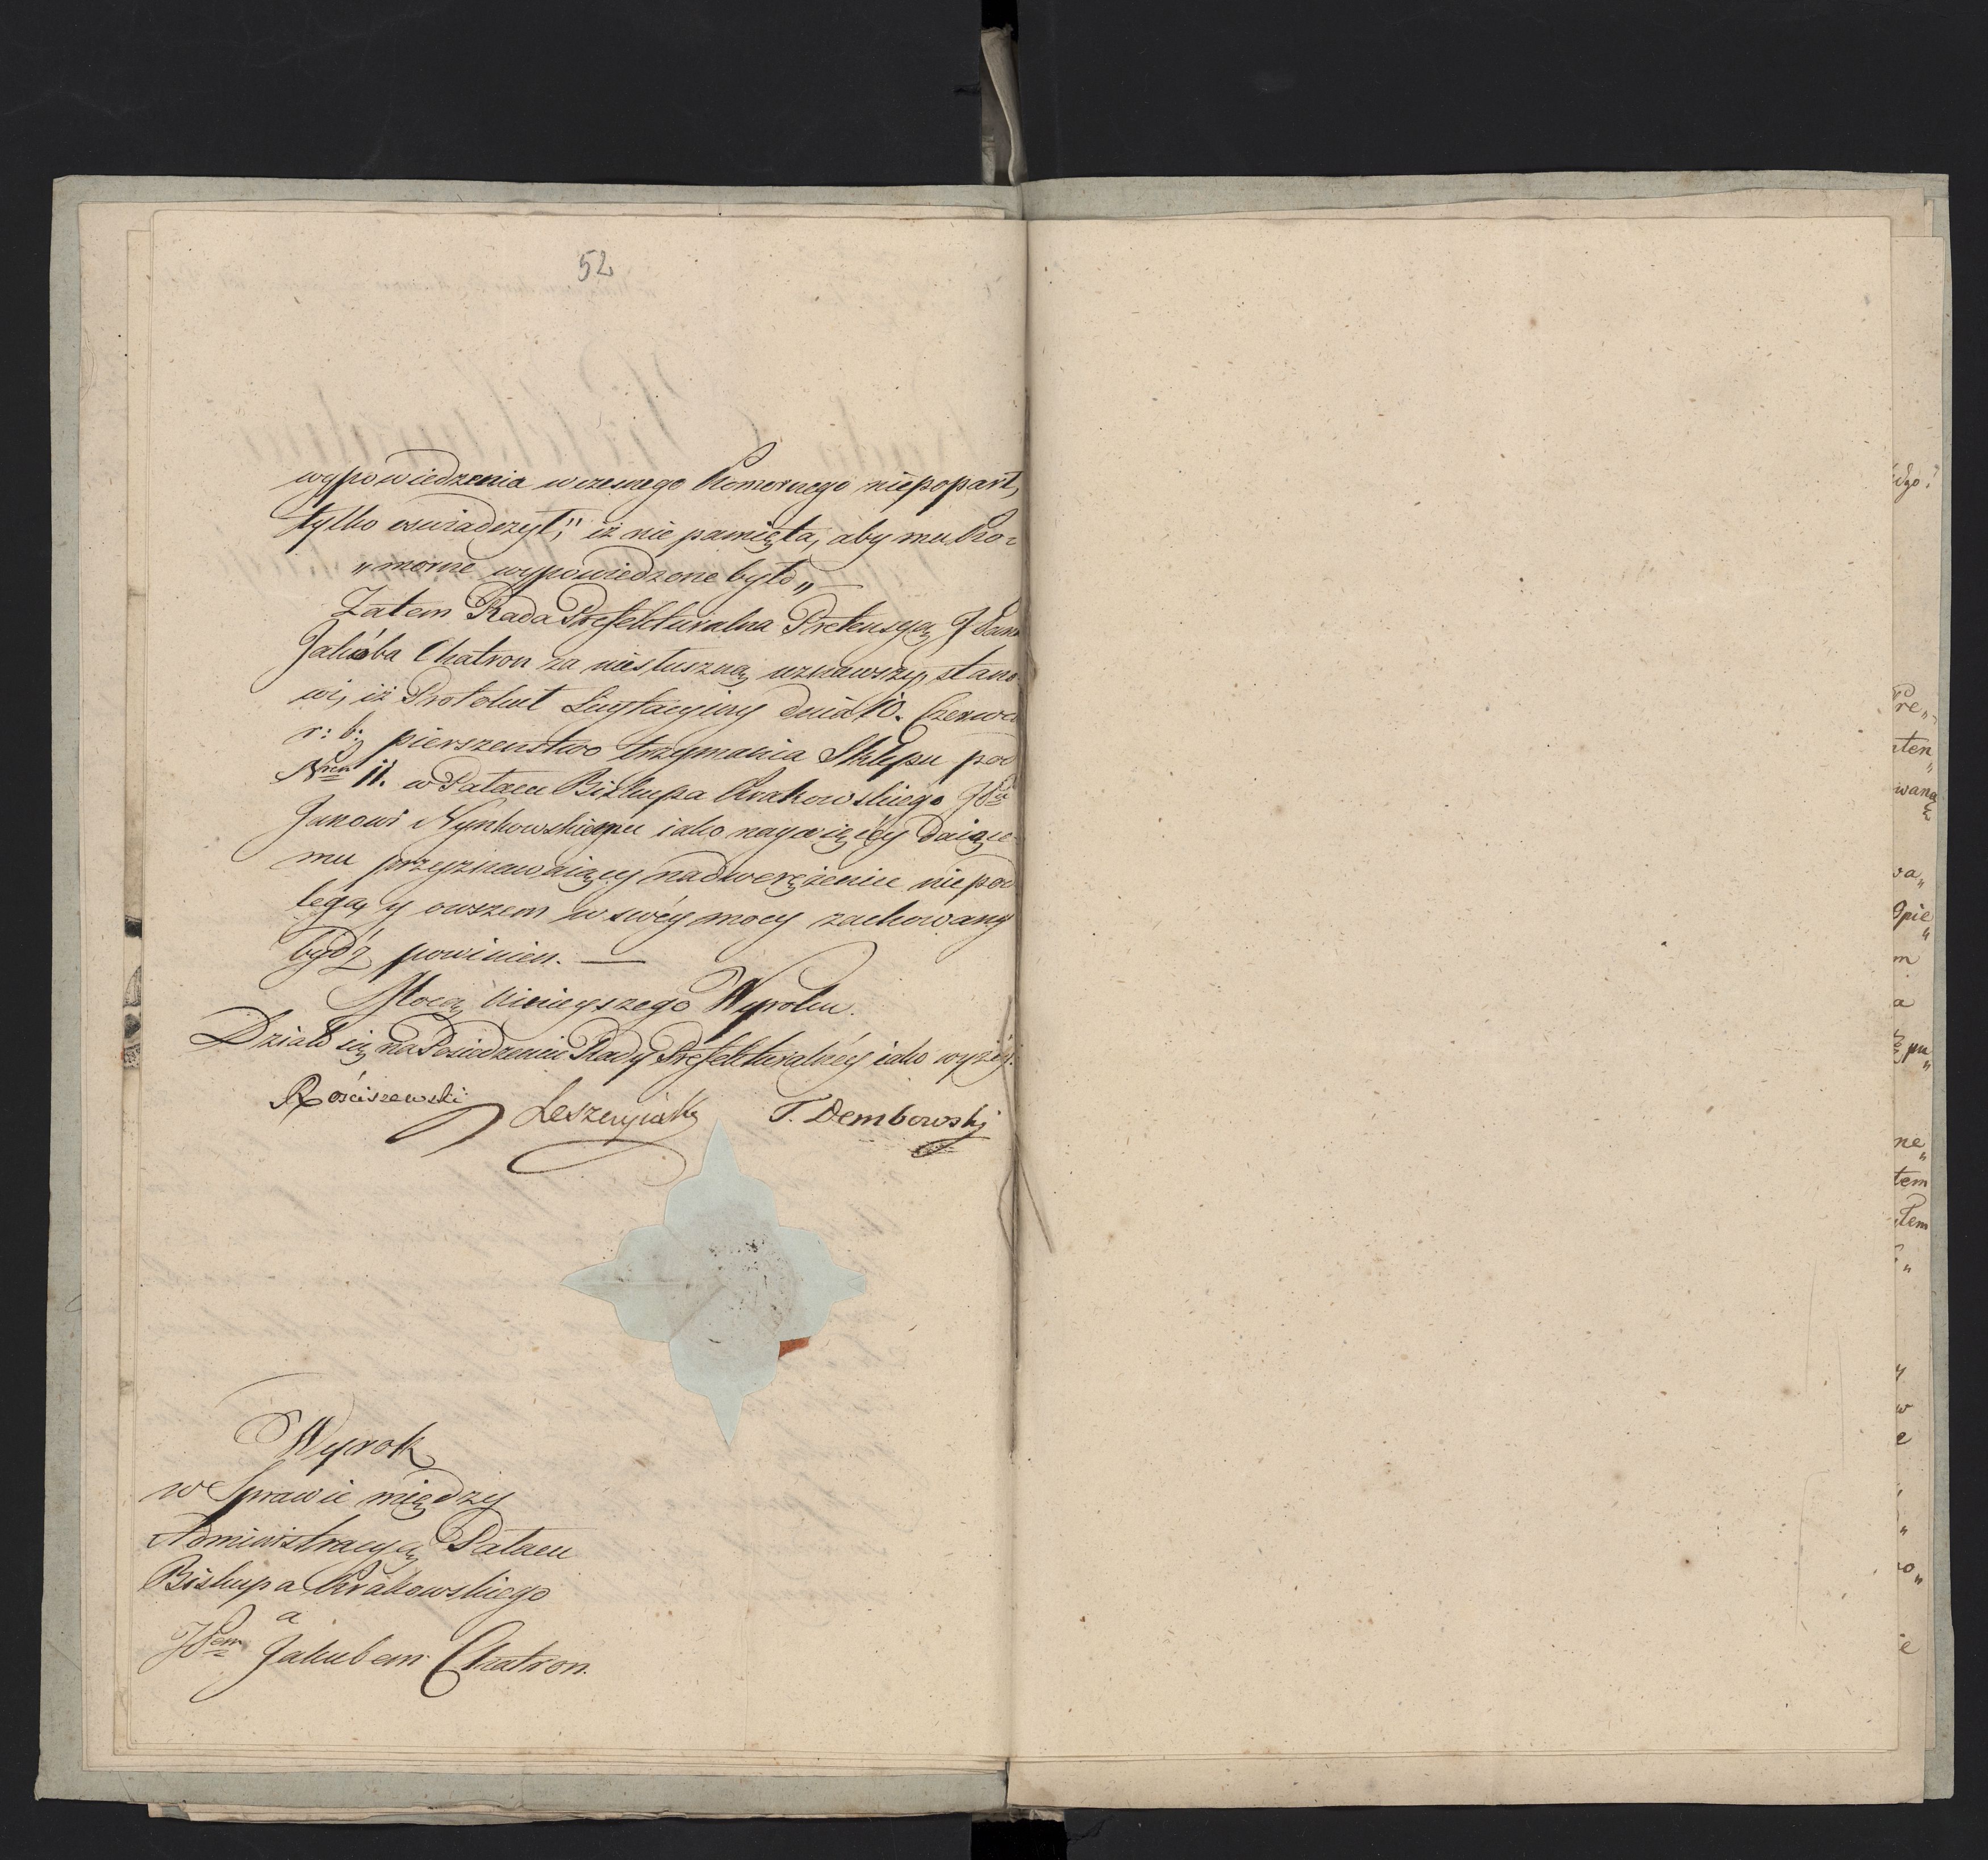 52
wypowiedzenia wczesnego Komornego niepoparł,
tylko oswiadczył, „ iż nie pamięta, aby mu Ko=
„morne wypowiedzone było„
Zatem Rada Prefekturalna Pretensyą JPana
Jakóba Chatron za niesłuszną uznawszy, stano
wi, iż Protokuł Licytacyiny dnia 10. Czerwca
r: b: pierszeństwo trzymania Sklepu pod
Nrem 11. w Pałacu Biskupa Krakowskiego JPu
Janowi Nynkowskiemu iako naywięcéy daiące
mu przyznawaiący nadwerężeniu niepod
lega, y owszem w swéy mocy zachowany
bydź powinien. —
Mocą Ninieyszego Wyroku.
Działo się na Posiedzeniu Rady Prefekturalnéy iako wyżéy.
Rościszewski Leszczyński T. Dembowski
Wyrok
w Sprawie między
Administracyą Pałacu
Biskupa Krakowskiego
a
JPem Jakubem Chatron.